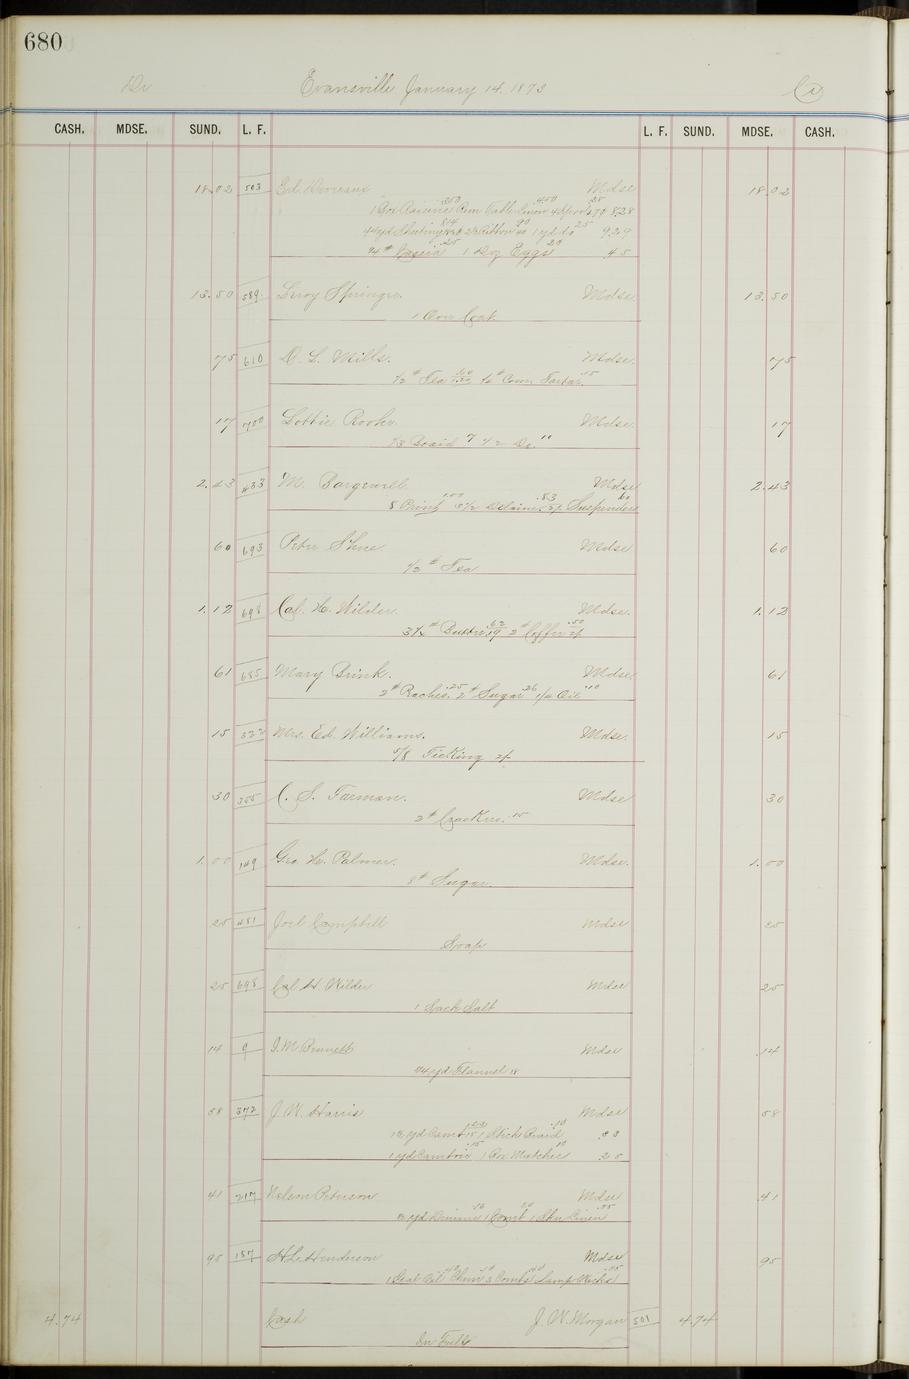 680
Dr Evansville January 14. 1873 Cr
CASH. MDSE. SUND. L. F. L. F. SUND. MDSE. CASH.
18.02 503 Ed. Mdse 18.02
1 Box Raisins Table Linen 8.28
Sheeting Ribbon 1 yd do 25 9.29
1/4 # Cassia 25 1 Doz Eggs 20 45
13.50 589 Leroy Springer. Mdse. 13.50
1 Over Coat
75 610 D. L. Mills. Mdse. 75
1/2 # Tea 60 1/4 # Cream Tartar. 15
17 700 Lottie Mdse. 17
Braid 7 1/2 Do. 10
2.43 433 M. Bargewell Mdse 2.43
8 Print 1.00 5 1/2 Delaine .83 Suspenders 60
60 693 Peter Shue. Mdse 60
1/2 # Tea
1.12 698 Cal. H. Wilder. Mdse. 1.12
3 1/4 # Butter .62 19 2 # Coffee .50 2/
61 685 Mary Brink. Mdse 61
2 # Peaches .25 2 # Sugar .26 Oil .10
15 322 Mrs. Ed. Williams. Mdse. 15
5/8 Ticking 2/
30 355 C. S. Farman. Mdse 30
2 # Crackers. .15
1.00 149 Geo. H. Palmer. Mdse. 1.00
8 # Sugar.
25 451 Joel Campbell Mdse 25
Soap
25 698 Cal. H. Wilder Mdse 25
1 Sack Salt
14 9 J. M. Bennett Mdse 14
yd Flannel 18
58 372 J. W. Harris Mdse 58
yd Camb 1 Stick Braid .10 33
1 yd Cambric .15 1 Box Matches 10 25
41 217 Nelson Peterson Mdse 41
yd 1 Comb Linen
95 187 H. L. Henderson Mdse 95
1 Geal Oil Chim 2 Combs Lamp Wicks
4.74 Cash J. W. Morgan 501 4.74
In Full